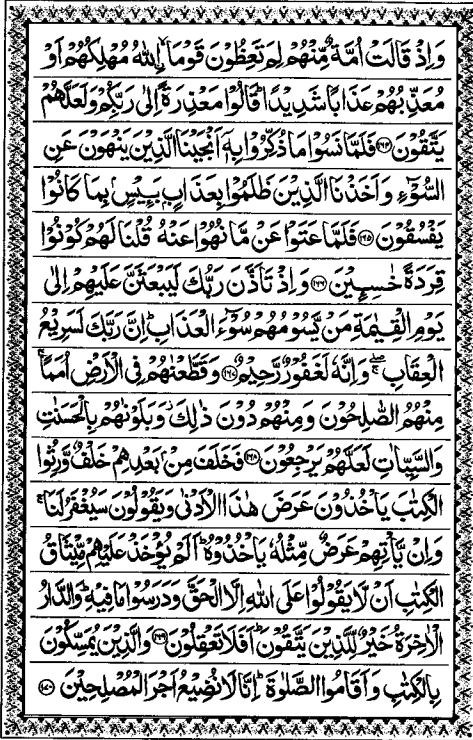 وَاِذْ قَالَتْ اُمَّةٌ مِّنْهُمْ لِمَ تَعِظُوْنَ قَوْمَاۨ ۙاللّٰهُ مُهْلِكُهُمْ اَوْ
مُعَذِّبُهُمْ عَذَابًا شَدِيْدًا ؕ قَالُوْا مَعْذِرَةً اِلٰى رَبِّكُمْ وَلَعَلَّهُمْ
يَتَّقُوْنَ ﴿۱۶۴﴾ فَلَمَّا نَسُوْا مَا ذُكِّرُوْا بِهٖۤ اَنْجَيْنَا الَّذِيْنَ يَنْهَوْنَ عَنِ
السُّوْٓءِ وَاَخَذْنَا الَّذِيْنَ ظَلَمُوْا بِعَذَابٍۭ بَـِٔيْسٍۭ بِمَا كَانُوْا
يَفْسُقُوْنَ ﴿۱۶۵﴾ فَلَمَّا عَتَوْا عَنْ مَّا نُهُوْا عَنْهُ قُلْنَا لَهُمْ كُوْنُوْا
قِرَدَةً خٰسِـِٕيْنَ ﴿۱۶۶﴾ وَاِذْ تَاَذَّنَ رَبُّكَ لَيَبْعَثَنَّ عَلَيْهِمْ اِلٰى
يَوْمِ الْقِيٰمَةِ مَنْ يَّسُوْمُهُمْ سُوْٓءَ الْعَذَابِ ؕ اِنَّ رَبَّكَ لَسَرِيْعُ
الْعِقَابِ ۖۚ وَاِنَّهٗ لَغَفُوْرٌ رَّحِيْمٌ ﴿۱۶۷﴾ وَقَطَّعْنٰهُمْ فِى الْاَرْضِ اُمَمًا ۚ
مِنْهُمُ الصّٰلِحُوْنَ وَمِنْهُمْ دُوْنَ ذٰلِكَ ؗ وَبَلَوْنٰهُمْ بِالْحَسَنٰتِ
وَالسَّيِّاٰتِ لَعَلَّهُمْ يَرْجِعُوْنَ ﴿۱۶۸﴾ فَخَلَفَ مِنْۢ بَعْدِهِمْ خَلْفٌ وَّرِثُوا
الْكِتٰبَ يَاْخُذُوْنَ عَرَضَ هٰذَا الْاَدْنٰى وَيَقُوْلُوْنَ سَيُغْفَرُ لَنَا ۚ
وَاِنْ يَّاْتِهِمْ عَرَضٌ مِّثْلُهٗ يَاْخُذُوْهُ ؕ اَلَمْ يُؤْخَذْ عَلَيْهِمْ مِّيْثَاقُ
الْكِتٰبِ اَنْ لَّا يَقُوْلُوْا عَلَى اللّٰهِ اِلَّا الْحَقَّ وَدَرَسُوْا مَا فِيْهِ ؕ وَالدَّارُ
الْاٰخِرَةُ خَيْرٌ لِّلَّذِيْنَ يَتَّقُوْنَ ؕ اَفَلَا تَعْقِلُوْنَ ﴿۱۶۹﴾ وَالَّذِيْنَ يُمَسِّكُوْنَ
بِالْكِتٰبِ وَاَقَامُوا الصَّلٰوةَ ؕ اِنَّا لَا نُضِيْعُ اَجْرَ الْمُصْلِحِيْنَ ﴿۱۷۰﴾